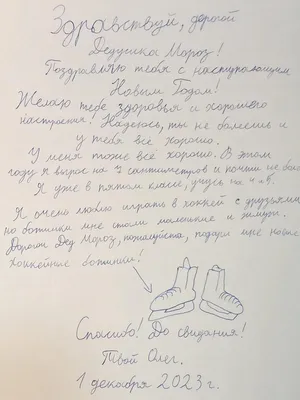 Здравствуй, дорогой
Дедушка Мороз!
Поздравляю тебя с наступающим
Новым Годом!
Желаю тебе здоровья и хорошего
настроения! Надеюсь, ты не болеешь и
у тебя всё хорошо.
У меня тоже всё хорошо. В этом
году я вырос на 7 сантиметров и почти не болел
Я уже в пятом классе, учусь на 4 и 5.
Я очень люблю играть в хоккей с друзьями
но ботинки мне стали маленькие и жмут.
Дорогой Дед Мороз, пожалуйста, подари мне новые
хоккейные ботинки!
Спасибо! До свидания!
Твой Олег.
1 декабря 2023 г.